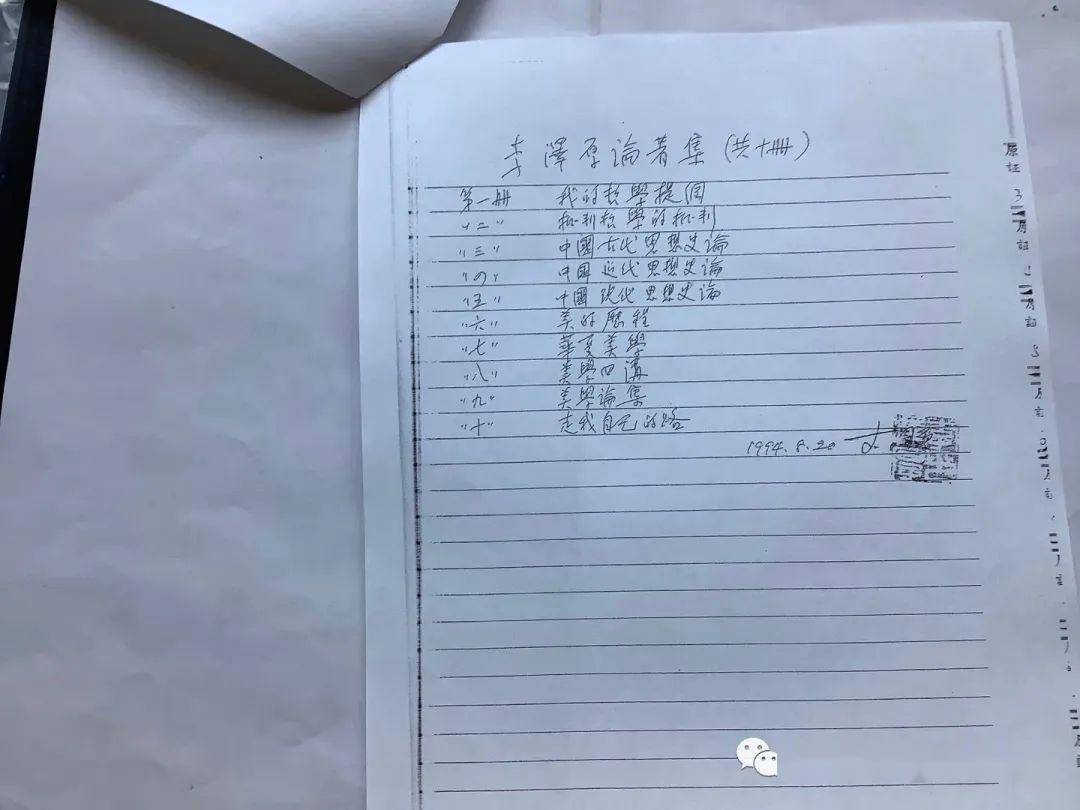 李澤厚論著集(共十冊)
第一冊 我的哲學提綱
〃二〃 批判哲學的批判
〃三〃 中國古代思想史論
〃四〃 中國近代思想史論
〃五〃 中國现代思想史論
〃六〃 美的歷程
〃七〃 華夏美學
〃八〃 美學四講
〃九〃 美學論集
〃十〃 走我自己的路
1994.8.20